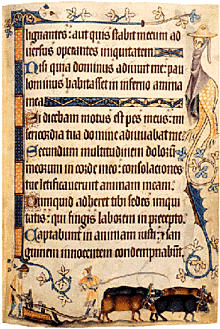 lignantes: aut quis stabit mecum ad
uersus operantes iniquitatem.
Nisi quia dominus adiuuit me: pau
lominus habitasset in inferno anima
mea
Si dicebam motus est pes meus: mi
sericordia tua domine adiuuabat me
Secundum multitudinem dolorum
meorum in corde meo: consolationes
tue letificauerunt animam meam.
Nunquid adheret tibi sedes iniqui
tatis: qui fingis laborem in precepto.
Captabunt in animam iusti: & san
guinem innocentem condempnabunt.